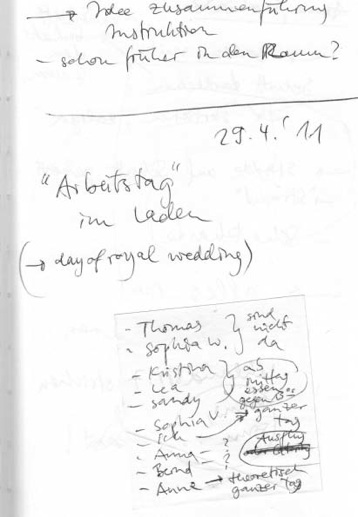 → Idee Zusammenführung
Instruktion
- schon früher in den Raum?
29.4.'11
"Arbeitstag"
im Laden
(→ day of royal wedding)
- Thomas } sind
- Sophia W. } nicht da
- Kristina } ab
- Lea } mittag
- Sandy } essen gegen
- Sophia V. → ganzer
- Ich Tag
- Anna - ? Ausflug
- Bernd ?
- Anne → theoretisch
ganzer Tag